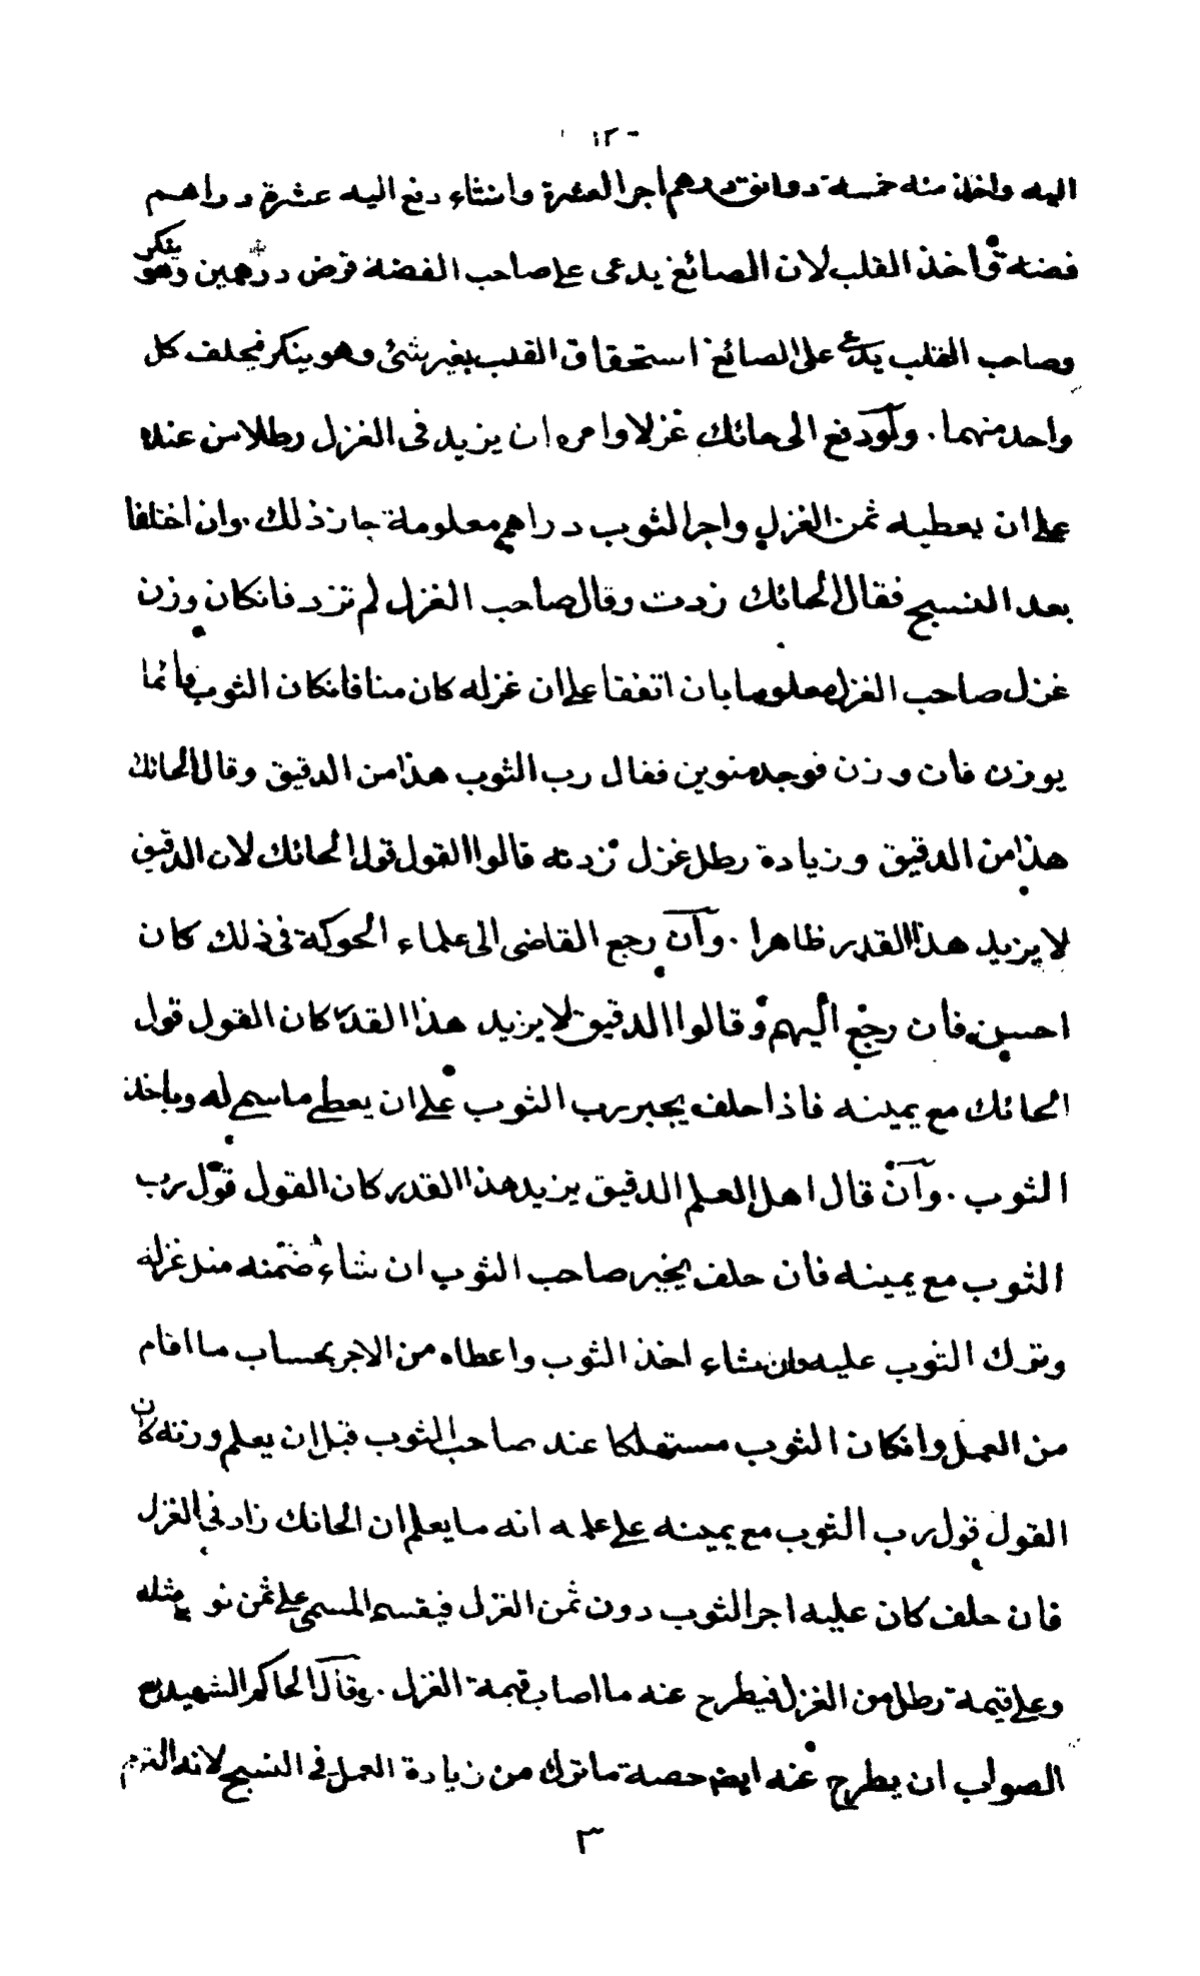 - ١٢
اليه واخذ منه خمسة دوانق ودرهم اجر العشرة وان شاء دفع اليه عشرة دراهم
فضة واخذ القلب لان الصائغ يدعى على صاحب الفضة قرض درهمين وهو ينكر
وصاحب القلب يدعى على الصائغ استحقاق القلب بغير شئ وهو ينكر فيحلف كل
واحد منهما . ولو دفع الى حائك غزلا وامره ان يزيد فى الغزل رطلا من عنده
على ان يعطيه ثمن الغزل واجر الثوب دراهم معلومة جاز ذلك . وان اختلفا
بعد النسج فقال الحائك زدت وقال صاحب الغزل لم تزد فانكان وزن
غزل صاحب الغزل معلوما بان اتفقا على ان غزله كان منا فانكان الثوب قائما
يوزن فان وزن فوجد منوين فقال رب الثوب هذا من الدقيق وقال الحائك
هذا من الدقيق وزيادة رطل غزل زدته قالوا القول قول الحائك لان الدقيق
لا يزيد هذا القدر ظاهرا . وان رجع القاضى الى علماء الحوكة فى ذلك كان
احسن فان رجع اليهم وقالوا الدقيق لا يزيد هذا القدر كان القول قول
الحائك مع يمينه فاذا حلف يجبر رب الثوب على ان يعطى ما سمى له وياخذ
الثوب . وان قال اهل العلم الدقيق يزيد هذا القدر كان القول قول رب
الثوب مع يمينه فان حلف يخير صاحب الثوب ان شاء ضمنه مثل غزله
وترك الثوب عليه وان شاء اخذ الثوب واعطاه من الاجر بحساب ما اقام
من العمل وانكان الثوب مستهلكا عند صاحب الثوب قبل ان يعلم وزنه كان
القول قول رب الثوب مع يمينه على علمه انه ما يعلم ان الحائك زاد فى الغزل
فان حلف كان عليه اجر الثوب دون ثمن الغزل فيقسم المسمى على ثمن ثوب مثله
وعلى قيمة رطل من الغزل فيطرح عنه ما اصاب قيمة الغزل . وقال الحاكم الشهيد رح
الصواب ان يطرح عنه ايضا حصة ما ترك من زيادة العمل فى النسج لانه التزم
٣